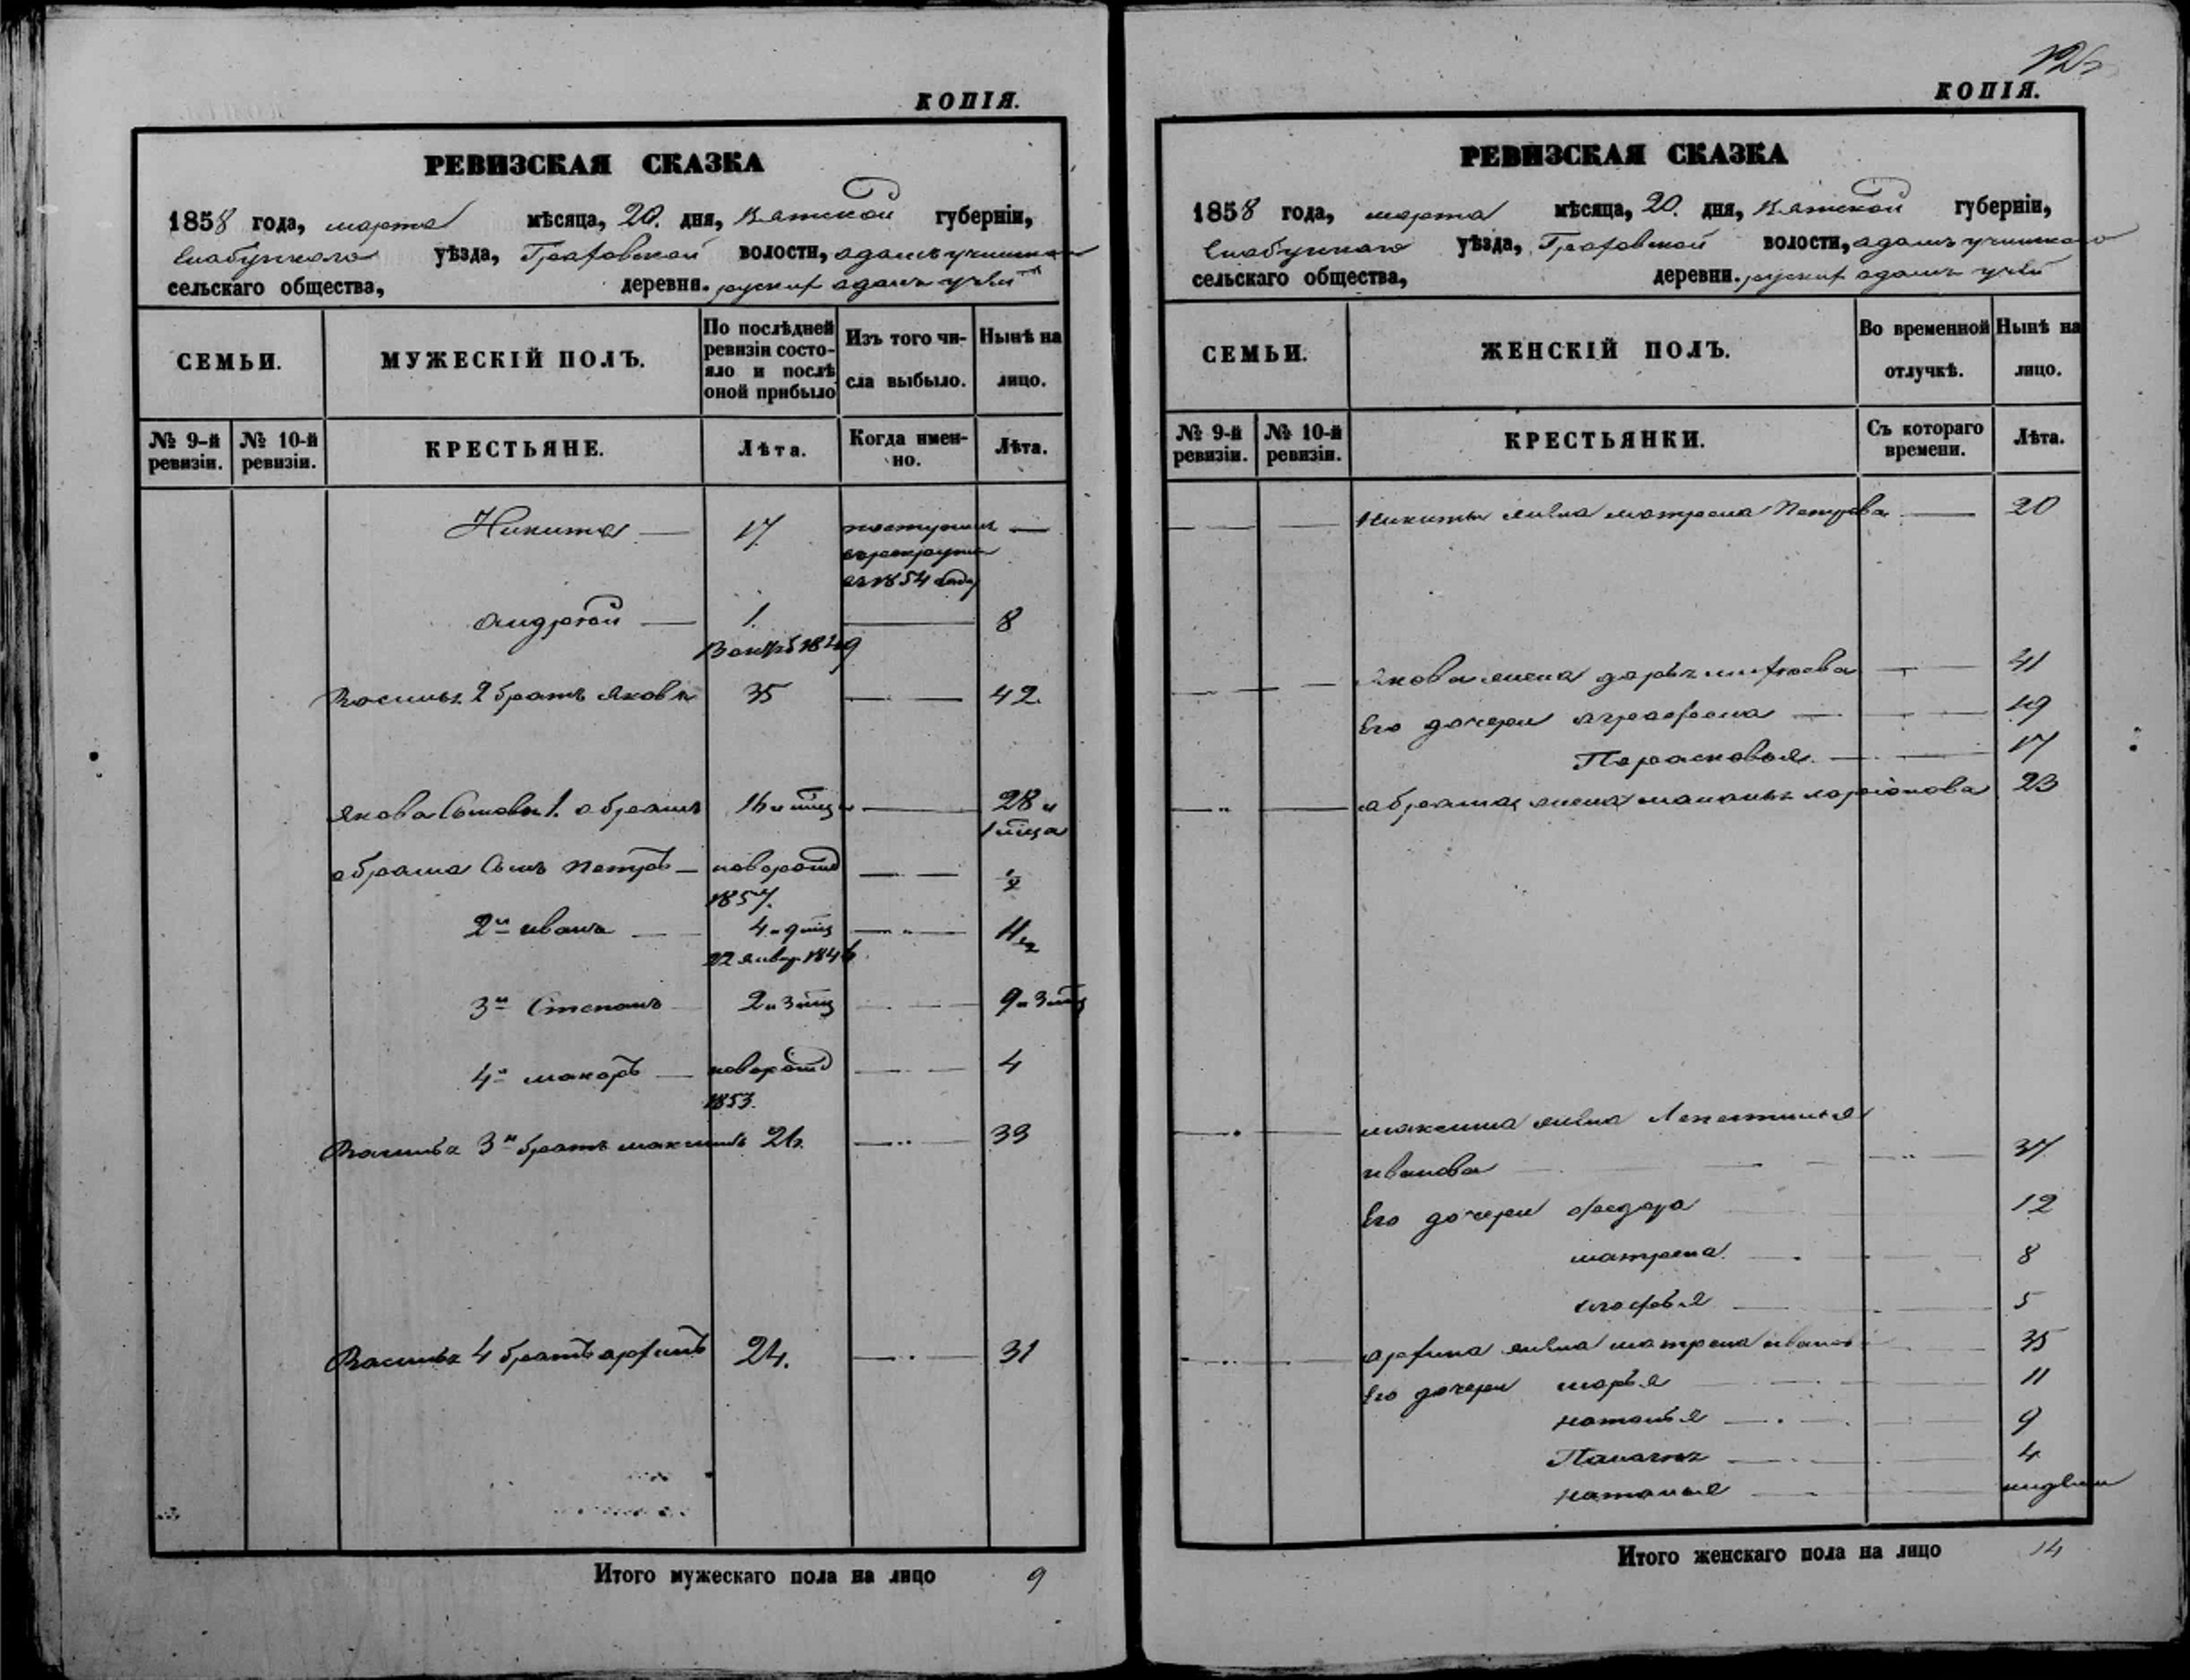 КОПІЯ.
РЕВИЗСКАЯ СКАЗКА
1858 года, марта мѣсяца, 20. дня, Вятской губерніи,
Елабужского уѣзда, Граховской волости, адамъ учинского
сельскаго общества, деревни. руских адамъ учей
СЕМЬИ.
МУЖЕСКІЙ ПОЛЪ.
По послѣдней ревизіи состояло и послѣ оной прибыло
Изъ того числа выбыло.
Нынѣ на лицо.
№ 9-й ревизіи.
№ 10-й ревизіи.
КРЕСТЬЯНЕ.
Лѣта.
Когда именно.
Лѣта.
Никита — 17 поступилъ —
в рекруты
въ 1854 году
андрей — 1. — 8
1849
Василья 2 братъ Яковъ 35 — 42.
Якова Сыновья 1. абрамъ 16 — 28 и
1 мца
абрама Сынъ Петръ — новорожд — ½
1857.
2й иванъ — 4 и 9 мц — 11
22 Январ 1846
3й Степанъ 2 и 3 мц — 9 и 3 мц
4й макаръ — новорожд — 4
1853.
Василья 3й братъ максимъ 26. — 33
Василья 4 братъ арфипъ 24. — 31
Итого мужескаго пола на лицо 9
КОПІЯ.
РЕВИЗСКАЯ СКАЗКА
1858 года, марта мѣсяца, 20. дня, Вятской губерніи,
Елабужского уѣзда, Граховской волости, адамъ учинского
сельскаго общества, деревни. руских адамъ учей
СЕМЬИ.
ЖЕНСКІЙ ПОЛЪ.
Во временной отлучкѣ.
Нынѣ на лицо.
№ 9-й ревизіи.
№ 10-й ревизіи.
КРЕСТЬЯНКИ.
Съ котораго времени.
Лѣта.
Никиты жена матрена Петрова — 20
Якова жена дарья — 41
Его дочери аграфена — 19
Парасковья — 17
абрама жена маланья ларіонова 23
максима жена
иванова — 37
Его дочери федора 12
матрена — 8
софья — 5
арфипа жена матрена иванов 35
Его дочери марья — 11
наталья — 9
Палагея — 4
наталья — недели
Итого женскаго пола на лицо 14